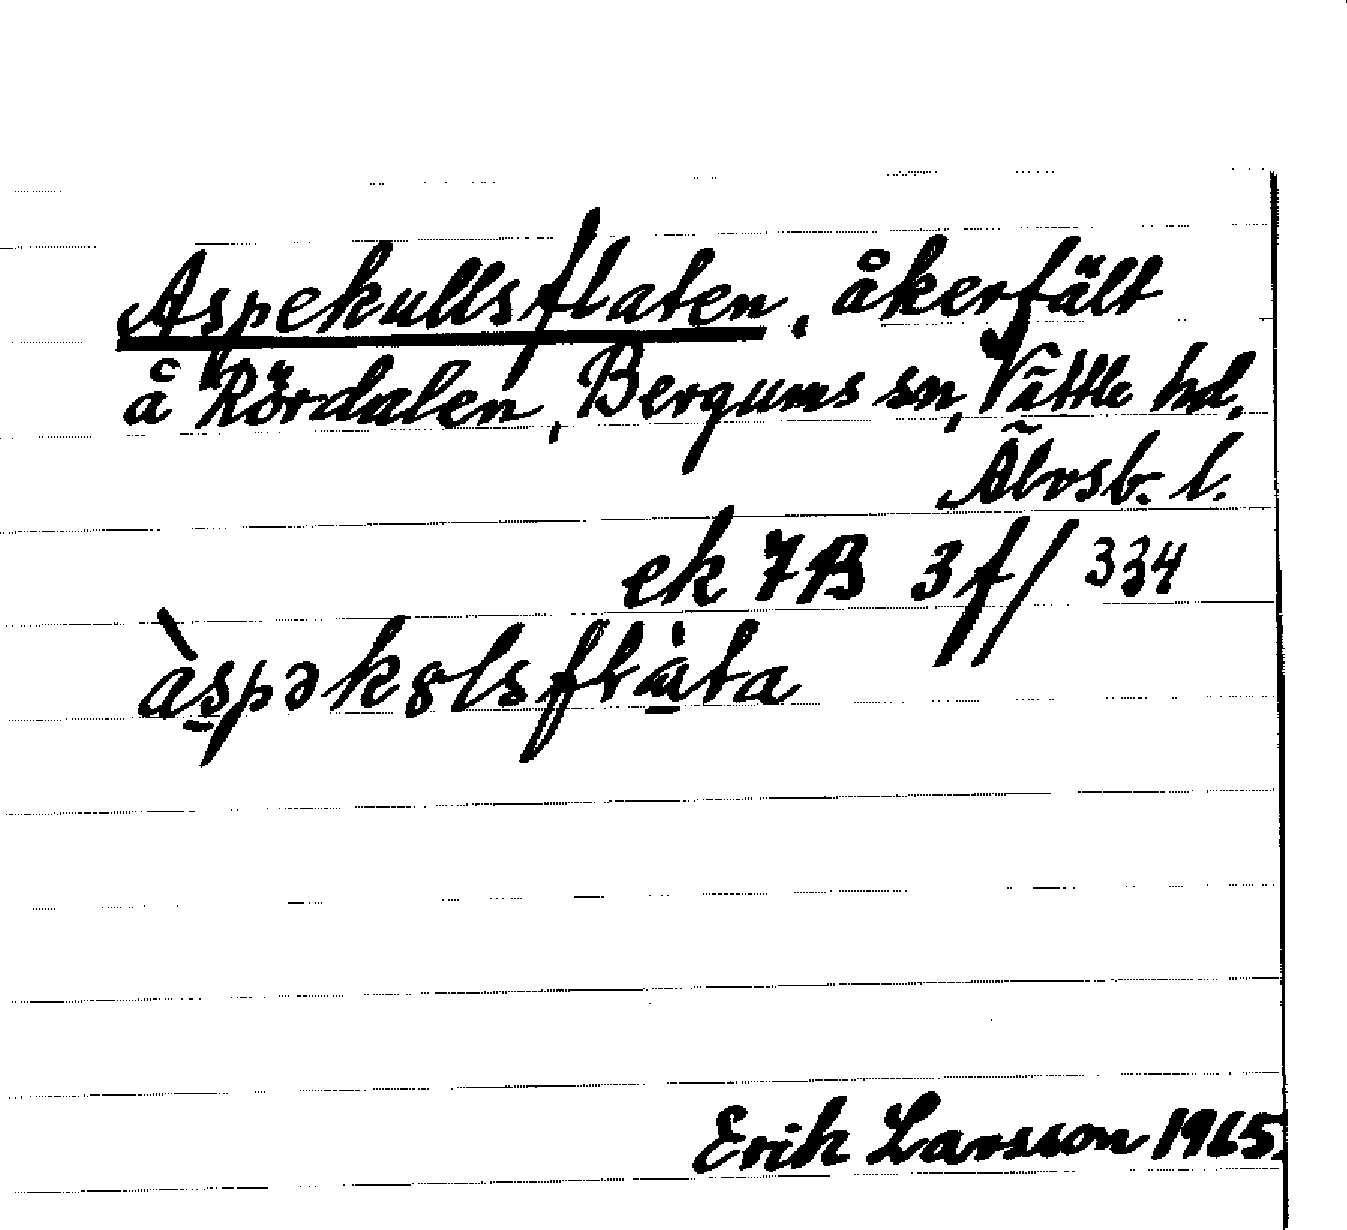 Aspekullsflaten, åkerfält
å Rördalen, Bergums sn, Vättle hd.
Älvsb. l.
ek 7B 3f/334
àspəkȣlsflàta
Erik Larsson 1965.